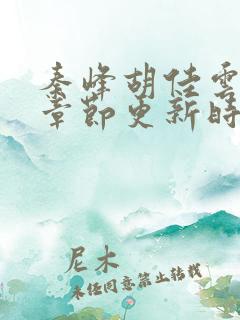 秦峰胡佳雲
章節更新時
尼木
未经同意禁止转载